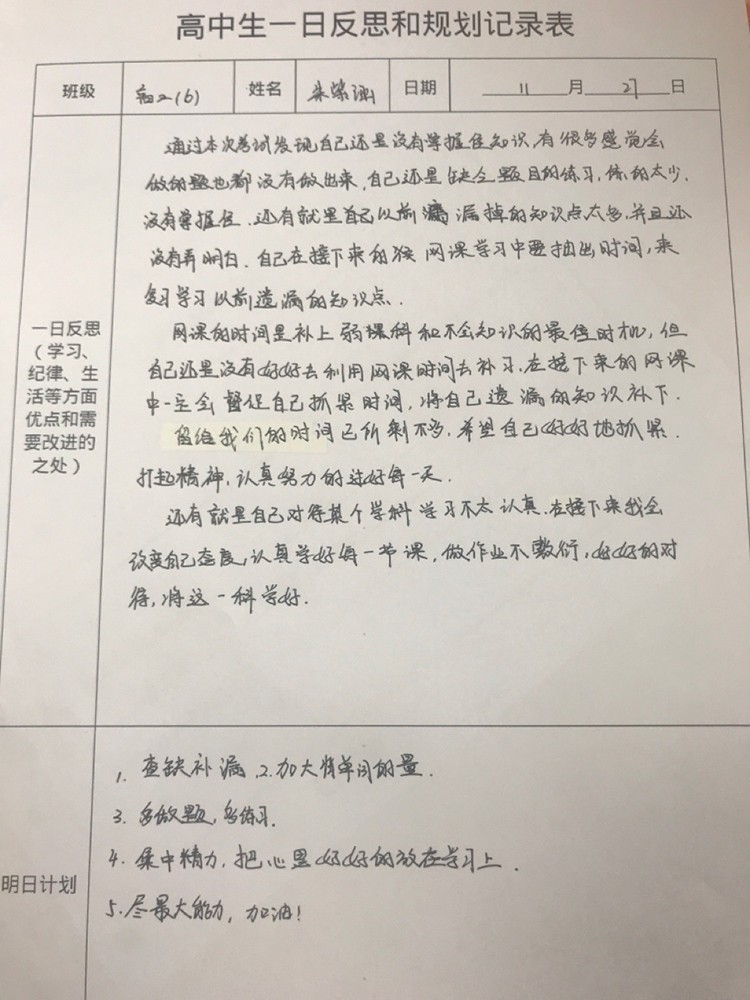 高中生一日反思和规划记录表
班级 高二(6) 姓名 朱 日期 11月27日
通过本次考试发现自己还是没有掌握住知识,有很多感觉会
做的题也都没有做出来,自己还是缺乏题目的练习,练的太少,
没有掌握住.还有就是自己以前漏掉的知识点太多,并且还
没有弄明白.自己在接下来的网课学习中要抽出时间,来
复习学习以前遗漏的知识点.
网课的时间是补上弱课科和不会知识的最佳时机,但
自己还是没有好好去利用网课时间去补习.在接下来的网课
中一定会督促自己抓紧时间,将自己遗漏的知识补下.
留给我们的时间已所剩不多,希望自己好好地抓紧.
打起精神,认真努力的过好每一天.
还有就是自己对待某个学科学习不太认真.在接下来我会
改变自己态度,认真学好每一节课,做作业不敷衍,好好的对
待,将这一科学好.
一日反思
(学习、
纪律、生
活等方面
优点和需
要改进的
之处)
明日计划
1. 查缺补漏.2.加大背单词的量.
3. 多做题,多练习.
4. 集中精力,把心思好好的放在学习上.
5.尽最大能力,加油!